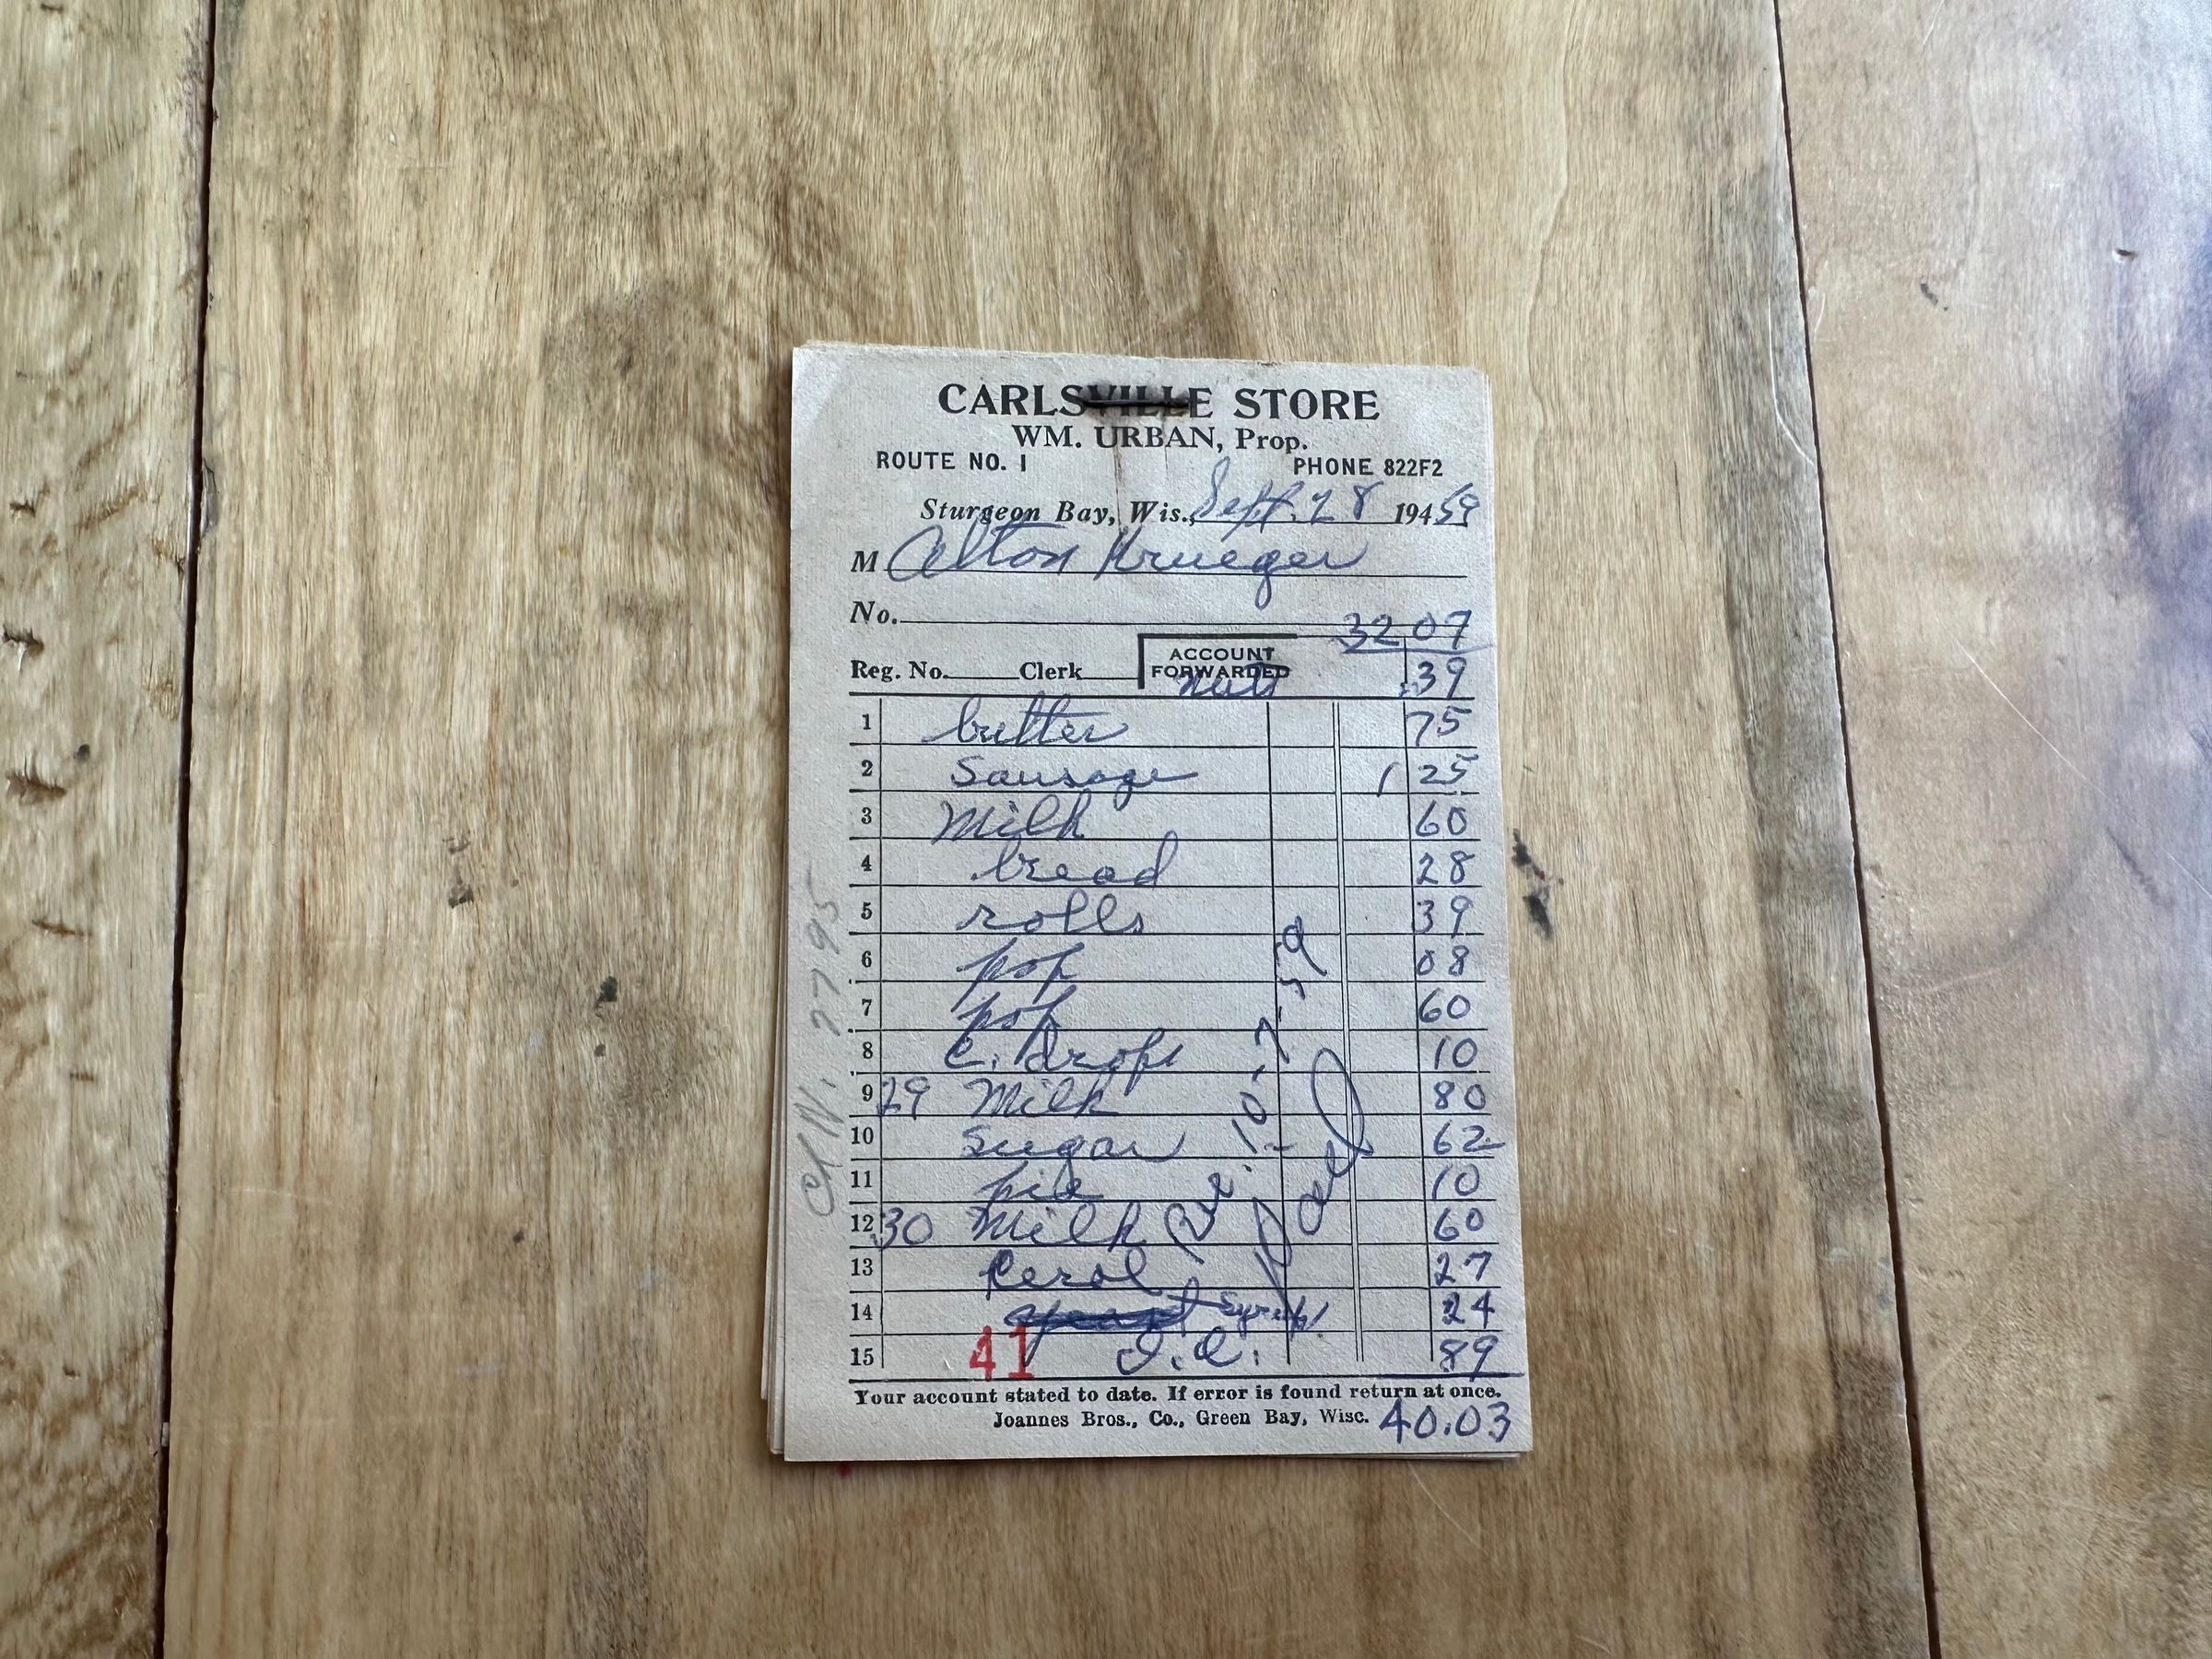 CARLSVILLE STORE
WM. URBAN, Prop.
ROUTE NO. 1 PHONE 822F2
Sturgeon Bay, Wis., Sept. 28 194 59
M Alton Krueger
No.
32 07
ACCOUNT
Reg. No. Clerk FORWARDED 39
1 butter 75
2 Sausage 1 25
3 Milk 60
4 bread 28
5 rolls 39
6 pop 08
7 pop 60
8 C. Drops 10
9 29 Milk 80
10 Sugar 62
11 pie 10
12 30 Milk 60
13 27
14 Syrup 24
15 41 89
Your account stated to date. If error is found return at once.
Joannes Bros., Co., Green Bay, Wisc. 40.03
10-7-59
Paid
2795